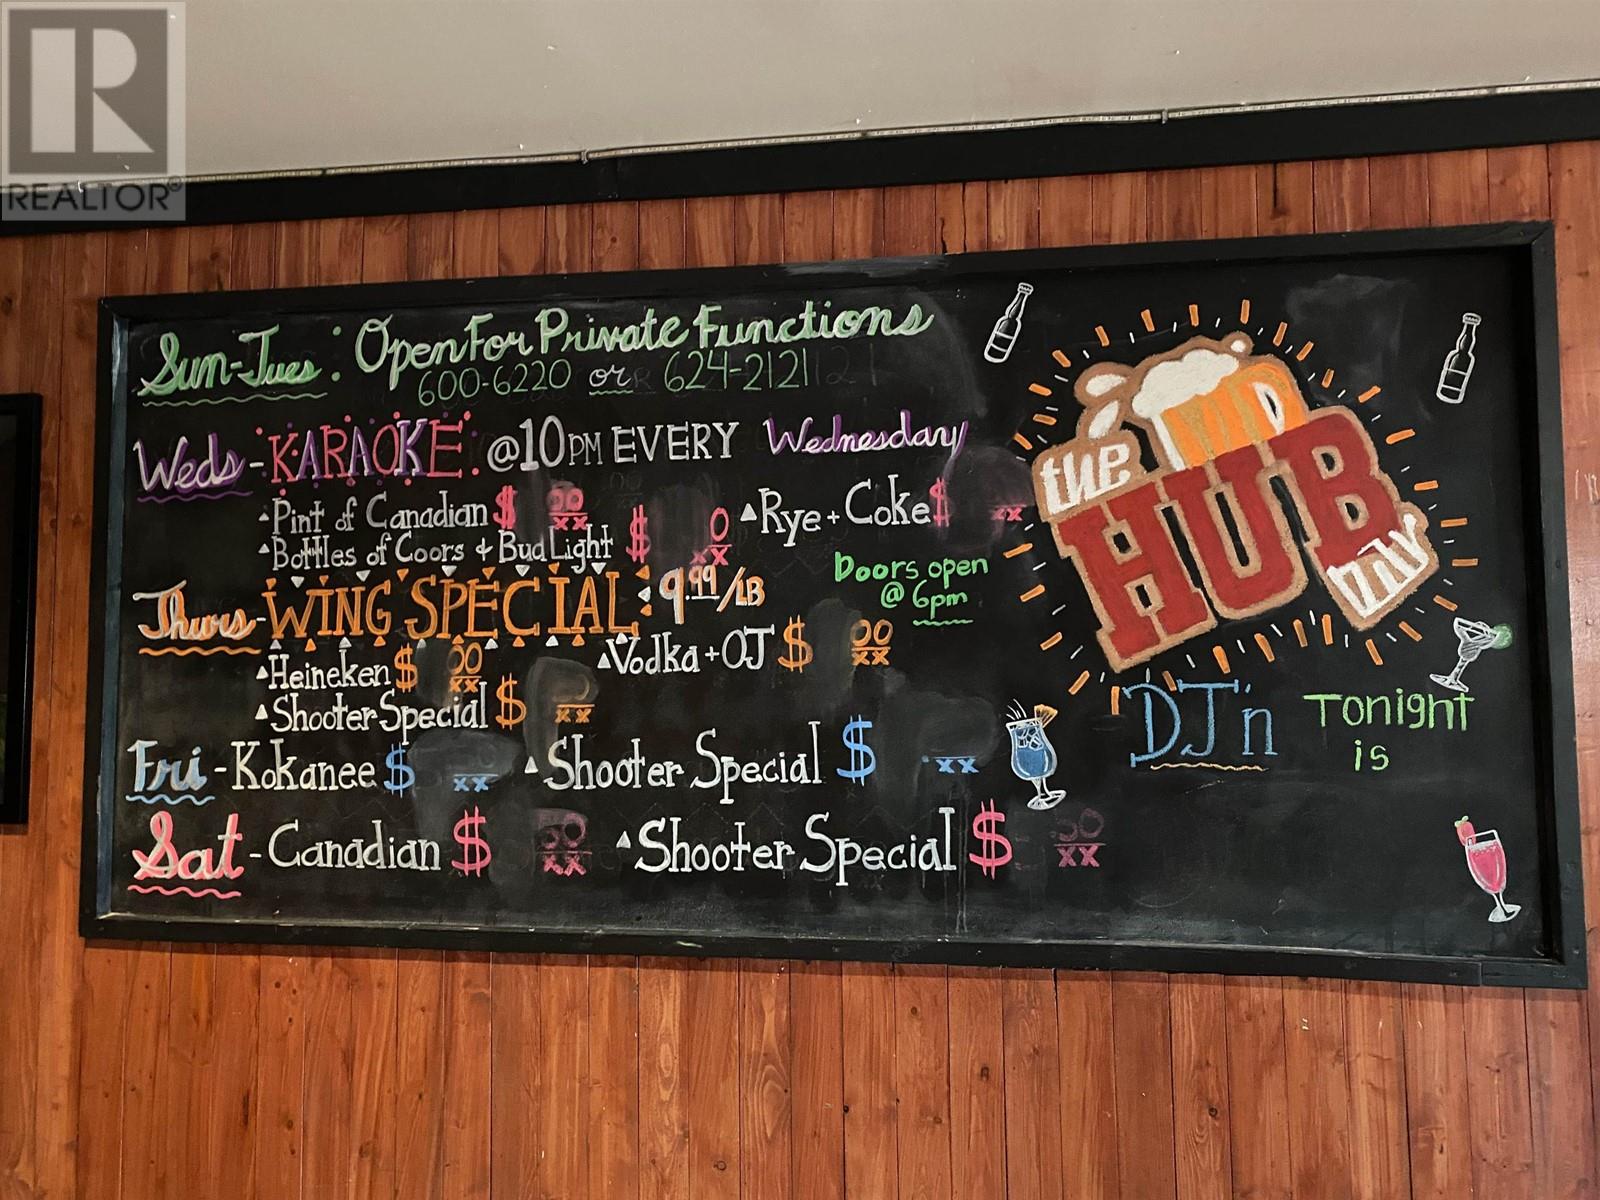 REALTOR®
Sun-Tues: Open For Private Functions
600-6220 or 624-2121
Weds - KARAOKE: @10PM EVERY Wednesday
Pint of Canadian $ 00 xx
Rye + Coke $ xx
Bottles of Coors & Bud Light $ 0 xx
Doors open
@ 6pm
Thurs - WING SPECIAL: 9.99/LB
Heineken $ 00 xx
Vodka + OJ $ 00 xx
Shooter Special $ xx
Fri - Kokanee $ xx
Shooter Special $ .xx
Sat - Canadian $ 50 xx
Shooter Special $ 50 xx
the
HUB
DJ'n Tonight
is